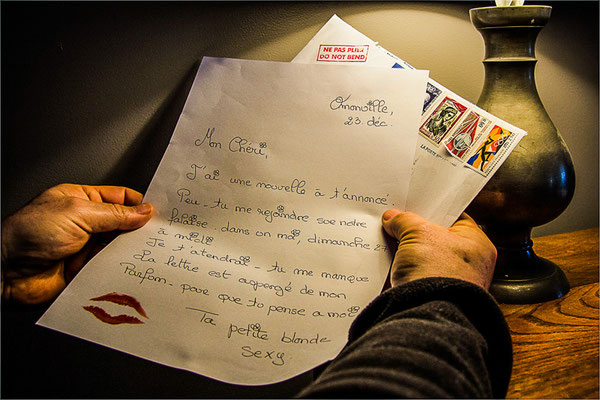 NE PAS PLIER
DO NOT BEND
Omonville,
23. déc.
Mon Chéri,
J'ai une nouvelle à t'annoncé.
Peu-tu me rejoindre sue notre
falaise dans on ma, dimanche 27
à midi
Je t'atendrai - tu me manque
La lettre est aspergé de mon
Parfom - pour que tu pense a moi
Ta petite blonde
sexy